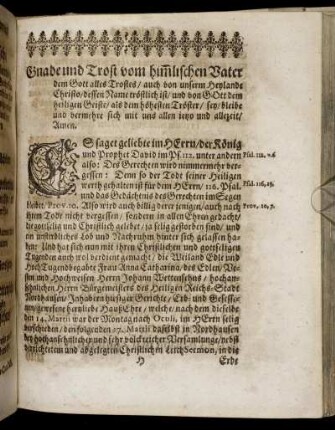 Gnade und Trost vom him̃lischen Vater
dem Gott alles Trostes / auch von unserm Heylande
Christo / dessen Name tröstlich ist / und von GOtt dem
heiligen Geiste / als dem höhesten Tröster / sey / bleibe
und vermehre sich mit uns allen itzo und allezeit /
Amen.
ES saget geliebte im HErrn / der König
und Prophet David im Ps. 112. unter andern
also: Des Gerechten wird nimmermehr ver-
gessen: Denn so der Tode seiner Heiligen
werth gehalten ist für dem HErrn / 116. Psal.
und das Gedächtnis des Gerechten im Segen
bleibet / Prov. 10. Also wird auch billig derer jenigen / auch nach
ihrem Tode nicht vergessen / sondern in allen Ehren gedacht /
die gottselig und Christlich gelebet / ja selig gestorben sind / und
ein unsterbliches Lob und Nachruhm hinter sich gelassen ha-
ben: Und hat sich nun mit ihren Christlichen und gottseligen
Tugenden auch wol verdient gemacht / die Weiland Edle und
HochTugendbegabte Frau Anna Catharina / des Edlen / Ve-
sten und Hochweisen Herrn Johann Wettensehns / hochan-
sehnlichen Herrn Bürgemeisters des Heiligen Reichs-Stadt
Nordhausen /
gewesene herzliebe HaußEhre / welche / nach dem dieselbe
den 14. Martii war der Montag nach Oculi, im HErrn selig
verschieden / den folgenden 17. Martii daselbst in Nordhausen
bey hochansehnlicher und sehr volckreicher Versamlunge / nebst
und abgelegten Christlichen LeichSermon / in die
H
Erde
Psal. 112. v. 6
Psal. 116, 15.
Prov. 10, 7.